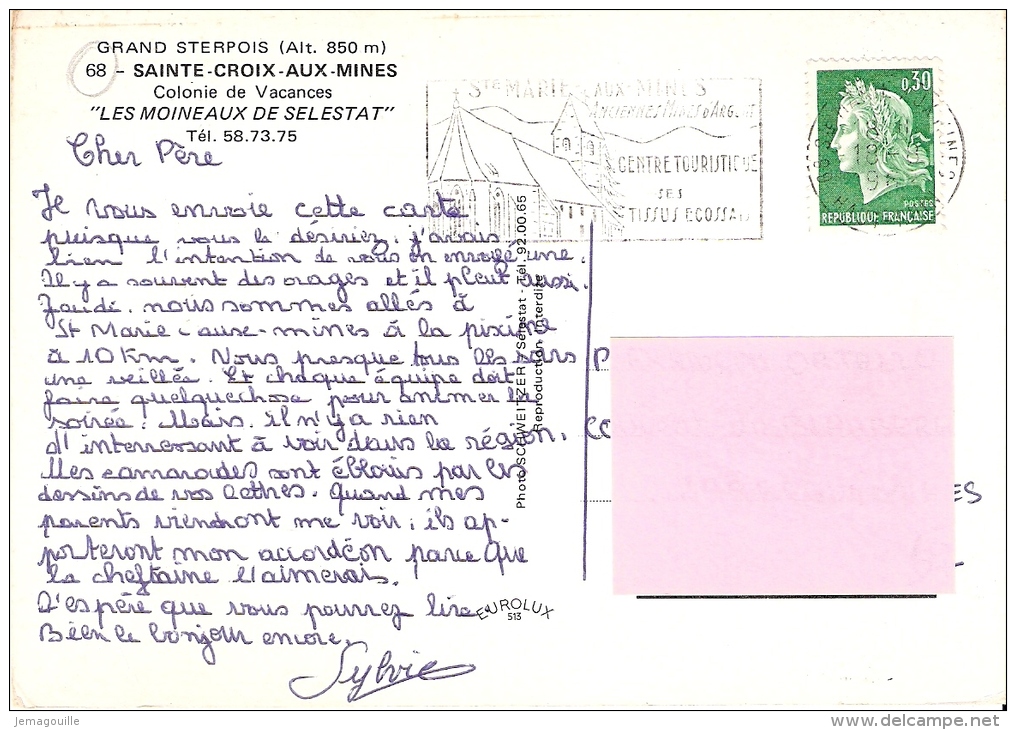 GRAND STERPOIS (Alt. 850 m)
68 - SAINTE-CROIX-AUX-MINES
Colonie de Vacances
"LES MOINEAUX DE SELESTAT"
Tél. 58.73.75
Cher Père
Je vous envoie cette carte
puisque vous la désiriez. j'avais
bien l'intention de vous en envoyé une.
Il y a souvent des orages et il pleut aussi.
Jeudi, nous sommes allés à
St Marie-aux-mines à la piscine
à 10 Km. Nous presque tous les soirs
une veillée. Et chaque équipe doit
faire quelquechose pour animer la
soirée. Mais, il n'y a rien
d'interressant à voir dans la région.
Mes camarades sont éblouis par les
dessins de vos lettres. Quand mes
parents viendront me voir, ils ap-
porteront mon accordéon parce que
la cheftaine l'aimerais.
J'espère que vous pourrez lire.
Bien le bonjour encore.
Sylvie
Photo SCHWEITZER - Sélestat - Tél. 92.00.65
Reproduction interdite
EUROLUX
513
STE MARIE AUX-MINES
ANCIENNES MINES D'ARGENT
CENTRE TOURISTIQUE
SES
TISSUS ECOSSAIS
0,30
POSTES
RÉPUBLIQUE FRANÇAISE
P
CO
ES
Jemagouille
www.delcampe.net